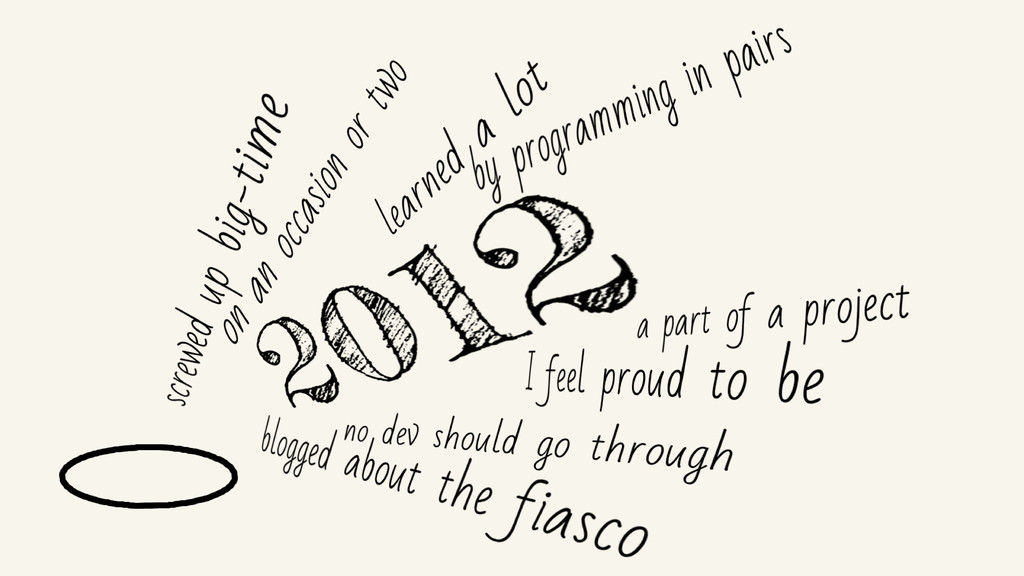 screwed up big-time
on an occasion or two
learned a lot
by programming in pairs
2012
a part of a project
I feel proud to be
no dev should go through
blogged about the fiasco